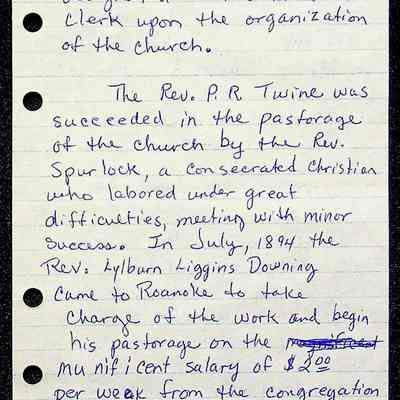 Clerk upon the organization
of the church.
The Rev. P. R. Twine was
succeeded in the pastorage
of the church by the Rev.
Spurlock, a consecrated Christian
who labored under great
difficulties, meeting with minor
success. In July, 1894 the
Rev. Lylburn Liggins Downing
came to Roanoke to take
charge of the work and begin
his pastorage on the
munificent salary of $2.00
per week from the congregation